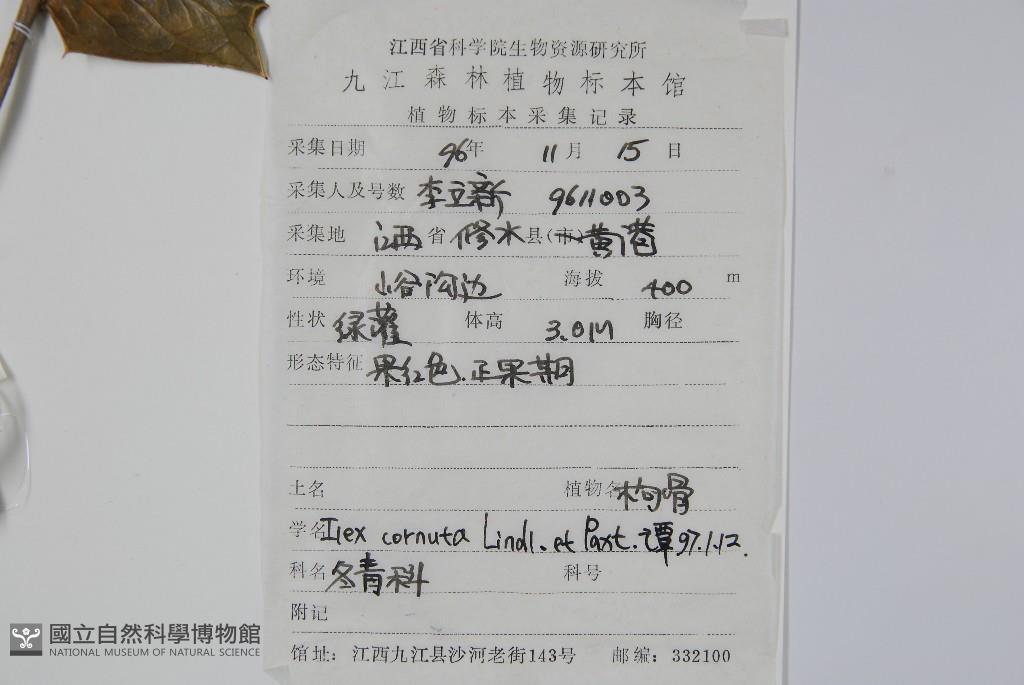 江西省科学院生物资源研究所
九江森林植物标本馆
植物标本采集记录
采集日期 96年 11月 15日
采集人及号数 李立新 9611003
采集地 江西省 修水县(市)黄港
环境 山谷沟边 海拔 400 m
性状 绿灌 体高 3.0M 胸径
形态特征 果红色.正果期
土名 植物名 枸骨
学名 Ilex cornuta Lindl. et Paxt. 谭 97.1.12.
科名 冬青科 科号
附记
馆址：江西九江县沙河老街143号 邮编：332100
國立自然科學博物館
NATIONAL MUSEUM OF NATURAL SCIENCE